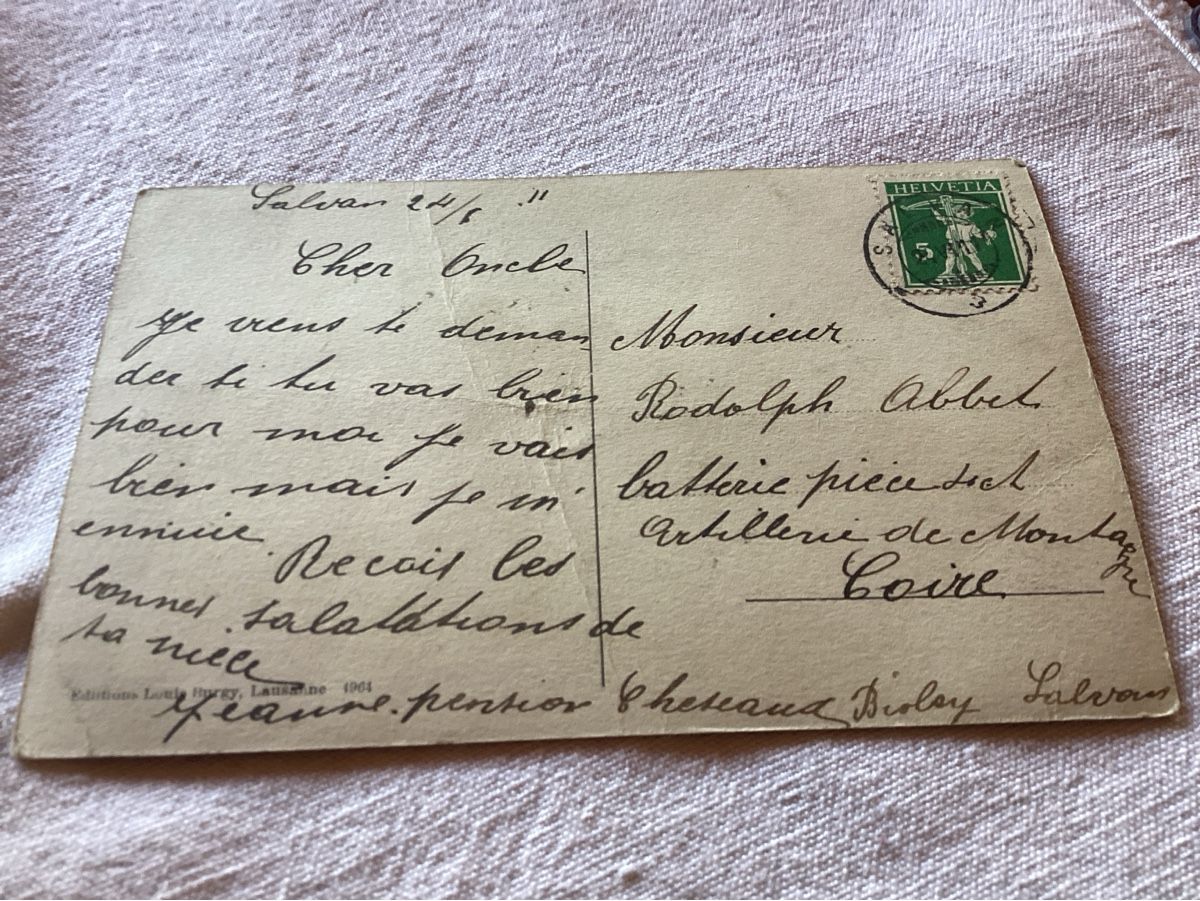 Salvan 24/8 11
Cher Oncle
Je viens te deman
der si tu vas bien
pour moi je vais
bien mais je m'
ennuie. Recois les
bonnes salatations de
ta niece
Jeanne. pension Cheseaux Biolay Salvan
Editions Louis Burgy, Lausanne 1964
HELVETIA
5
Monsieur
Rodolph Abbet
batterie piece
Artillerie de Montagne
Coire